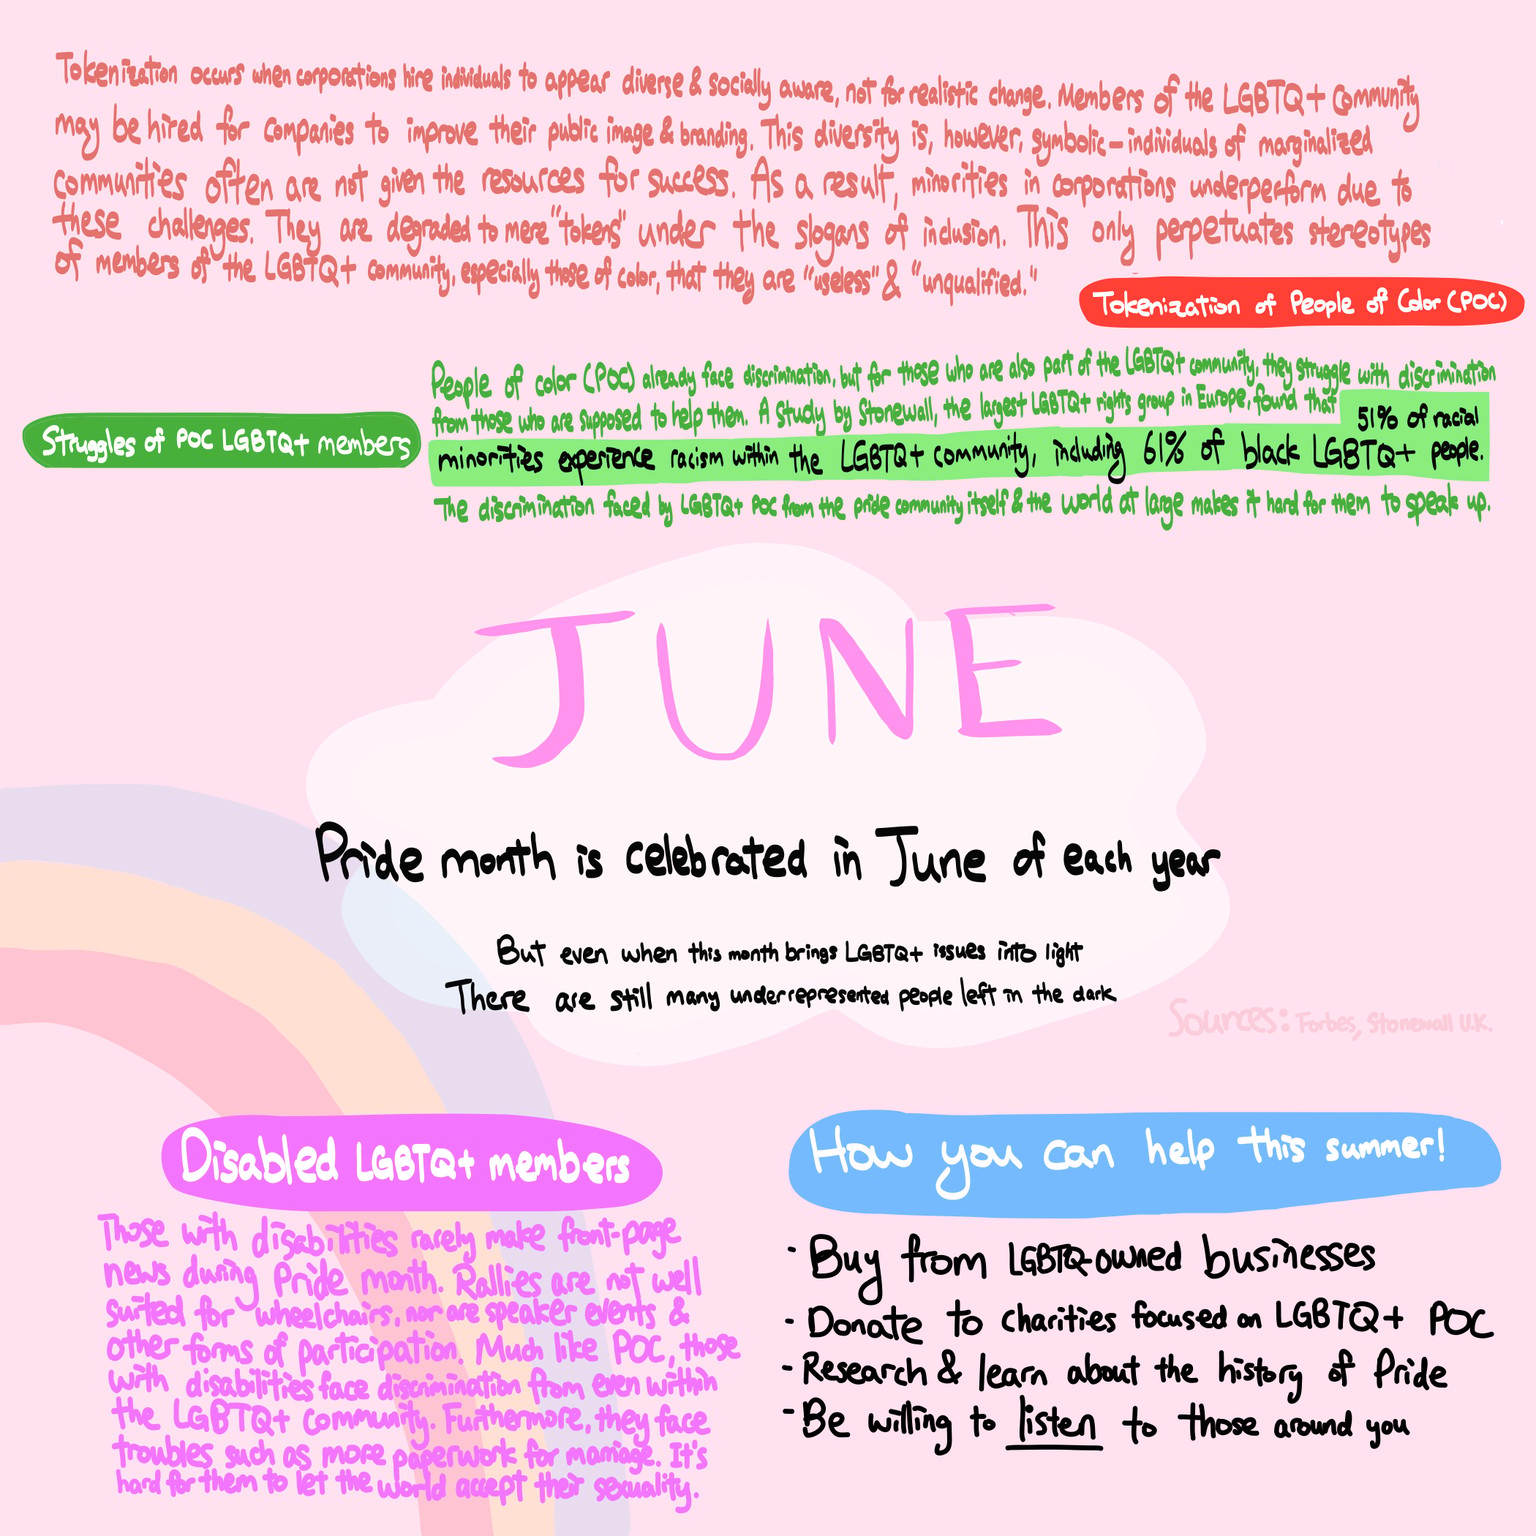 Tokenization occurs when corporations hire individuals to appear diverse & socially aware, not for realistic change. Members of the LGBTQ+ Community
may be hired for companies to improve their public image & branding. This diversity is, however, symbolic - individuals of marginalized
communities often are not given the resources for success. As a result, minorities in corporations underperform due to
these challenges. They are degraded to mere "tokens" under the slogans of inclusion. This only perpetuates stereotypes
of members of the LGBTQ+ community, especially those of color, that they are "useless" & "unqualified."
Tokenization of People of Color (POC)
Struggles of POC LGBTQ+ members
People of color (POC) already face discrimination, but for those who are also part of the LGBTQ+ community, they struggle with discrimination
from those who are supposed to help them. A study by Stonewall, the largest LGBTQ+ rights group in Europe, found that 51% of racial
minorities experience racism within the LGBTQ+ community, including 61% of black LGBTQ+ people.
The discrimination faced by LGBTQ+ POC from the pride community itself & the world at large makes it hard for them to speak up.
JUNE
Pride month is celebrated in June of each year
But even when this month brings LGBTQ+ issues into light
There are still many underrepresented people left in the dark
Sources: Forbes, Stonewall U.K.
Disabled LGBTQ+ members
Those with disabilities rarely make front-page
news during Pride month. Rallies are not well
suited for wheelchairs, nor are speaker events &
other forms of participation. Much like POC, those
with disabilities face discrimination from even within
the LGBTQ+ community. Furthermore, they face
troubles such as more paperwork for marriage. It's
hard for them to let the world accept their sexuality.
How you can help this summer!
- Buy from LGBTQ-owned businesses
- Donate to charities focused on LGBTQ+ POC
- Research & learn about the history of Pride
- Be willing to listen to those around you